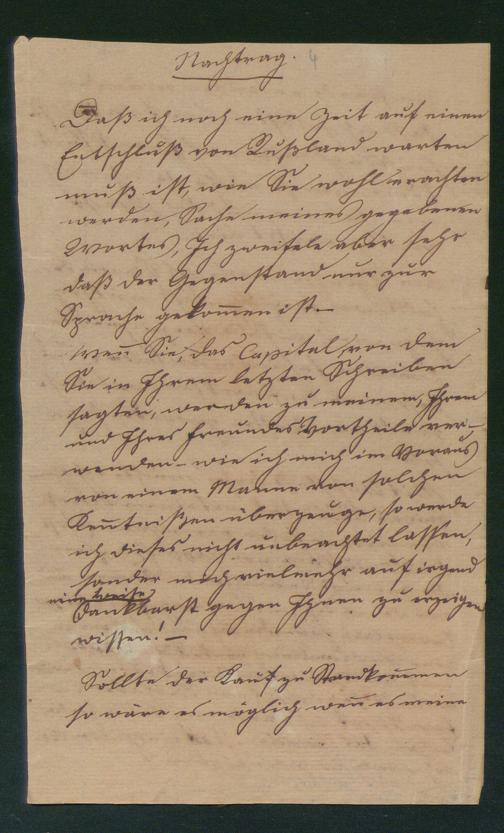 Nachtrag. 4
Daß ich noch eine Zeit auf einen
Entschluß von Rußland warten
muß ist, wie Sie wohl erachten
werden, Sache meines gegebenen
Wortes, Ich zweifele aber sehr
daß der Gegenstand nur zur
Sprache gekom̄en ist.—
Wen̄ Sie, das Capital, von dem
Sie in Ihrem letzten Schreiben
sagten, werden zu meinem, Ihrem
und Ihres Freundes Vortheile ver-
wenden – wie ich mich im Voraus
von einem Manne von solchen
Ken̄tnißen überzeuge, so werde
ich dieses nicht unbeachtet lassen,
sonder mich vielmehr auf irgend
eine Weise
Dankbarst gegen Ihnen zu erzeigen
wissen! —
Sollte der Kauf zu Standkom̄men
so wäre es möglich wen̄ es meine